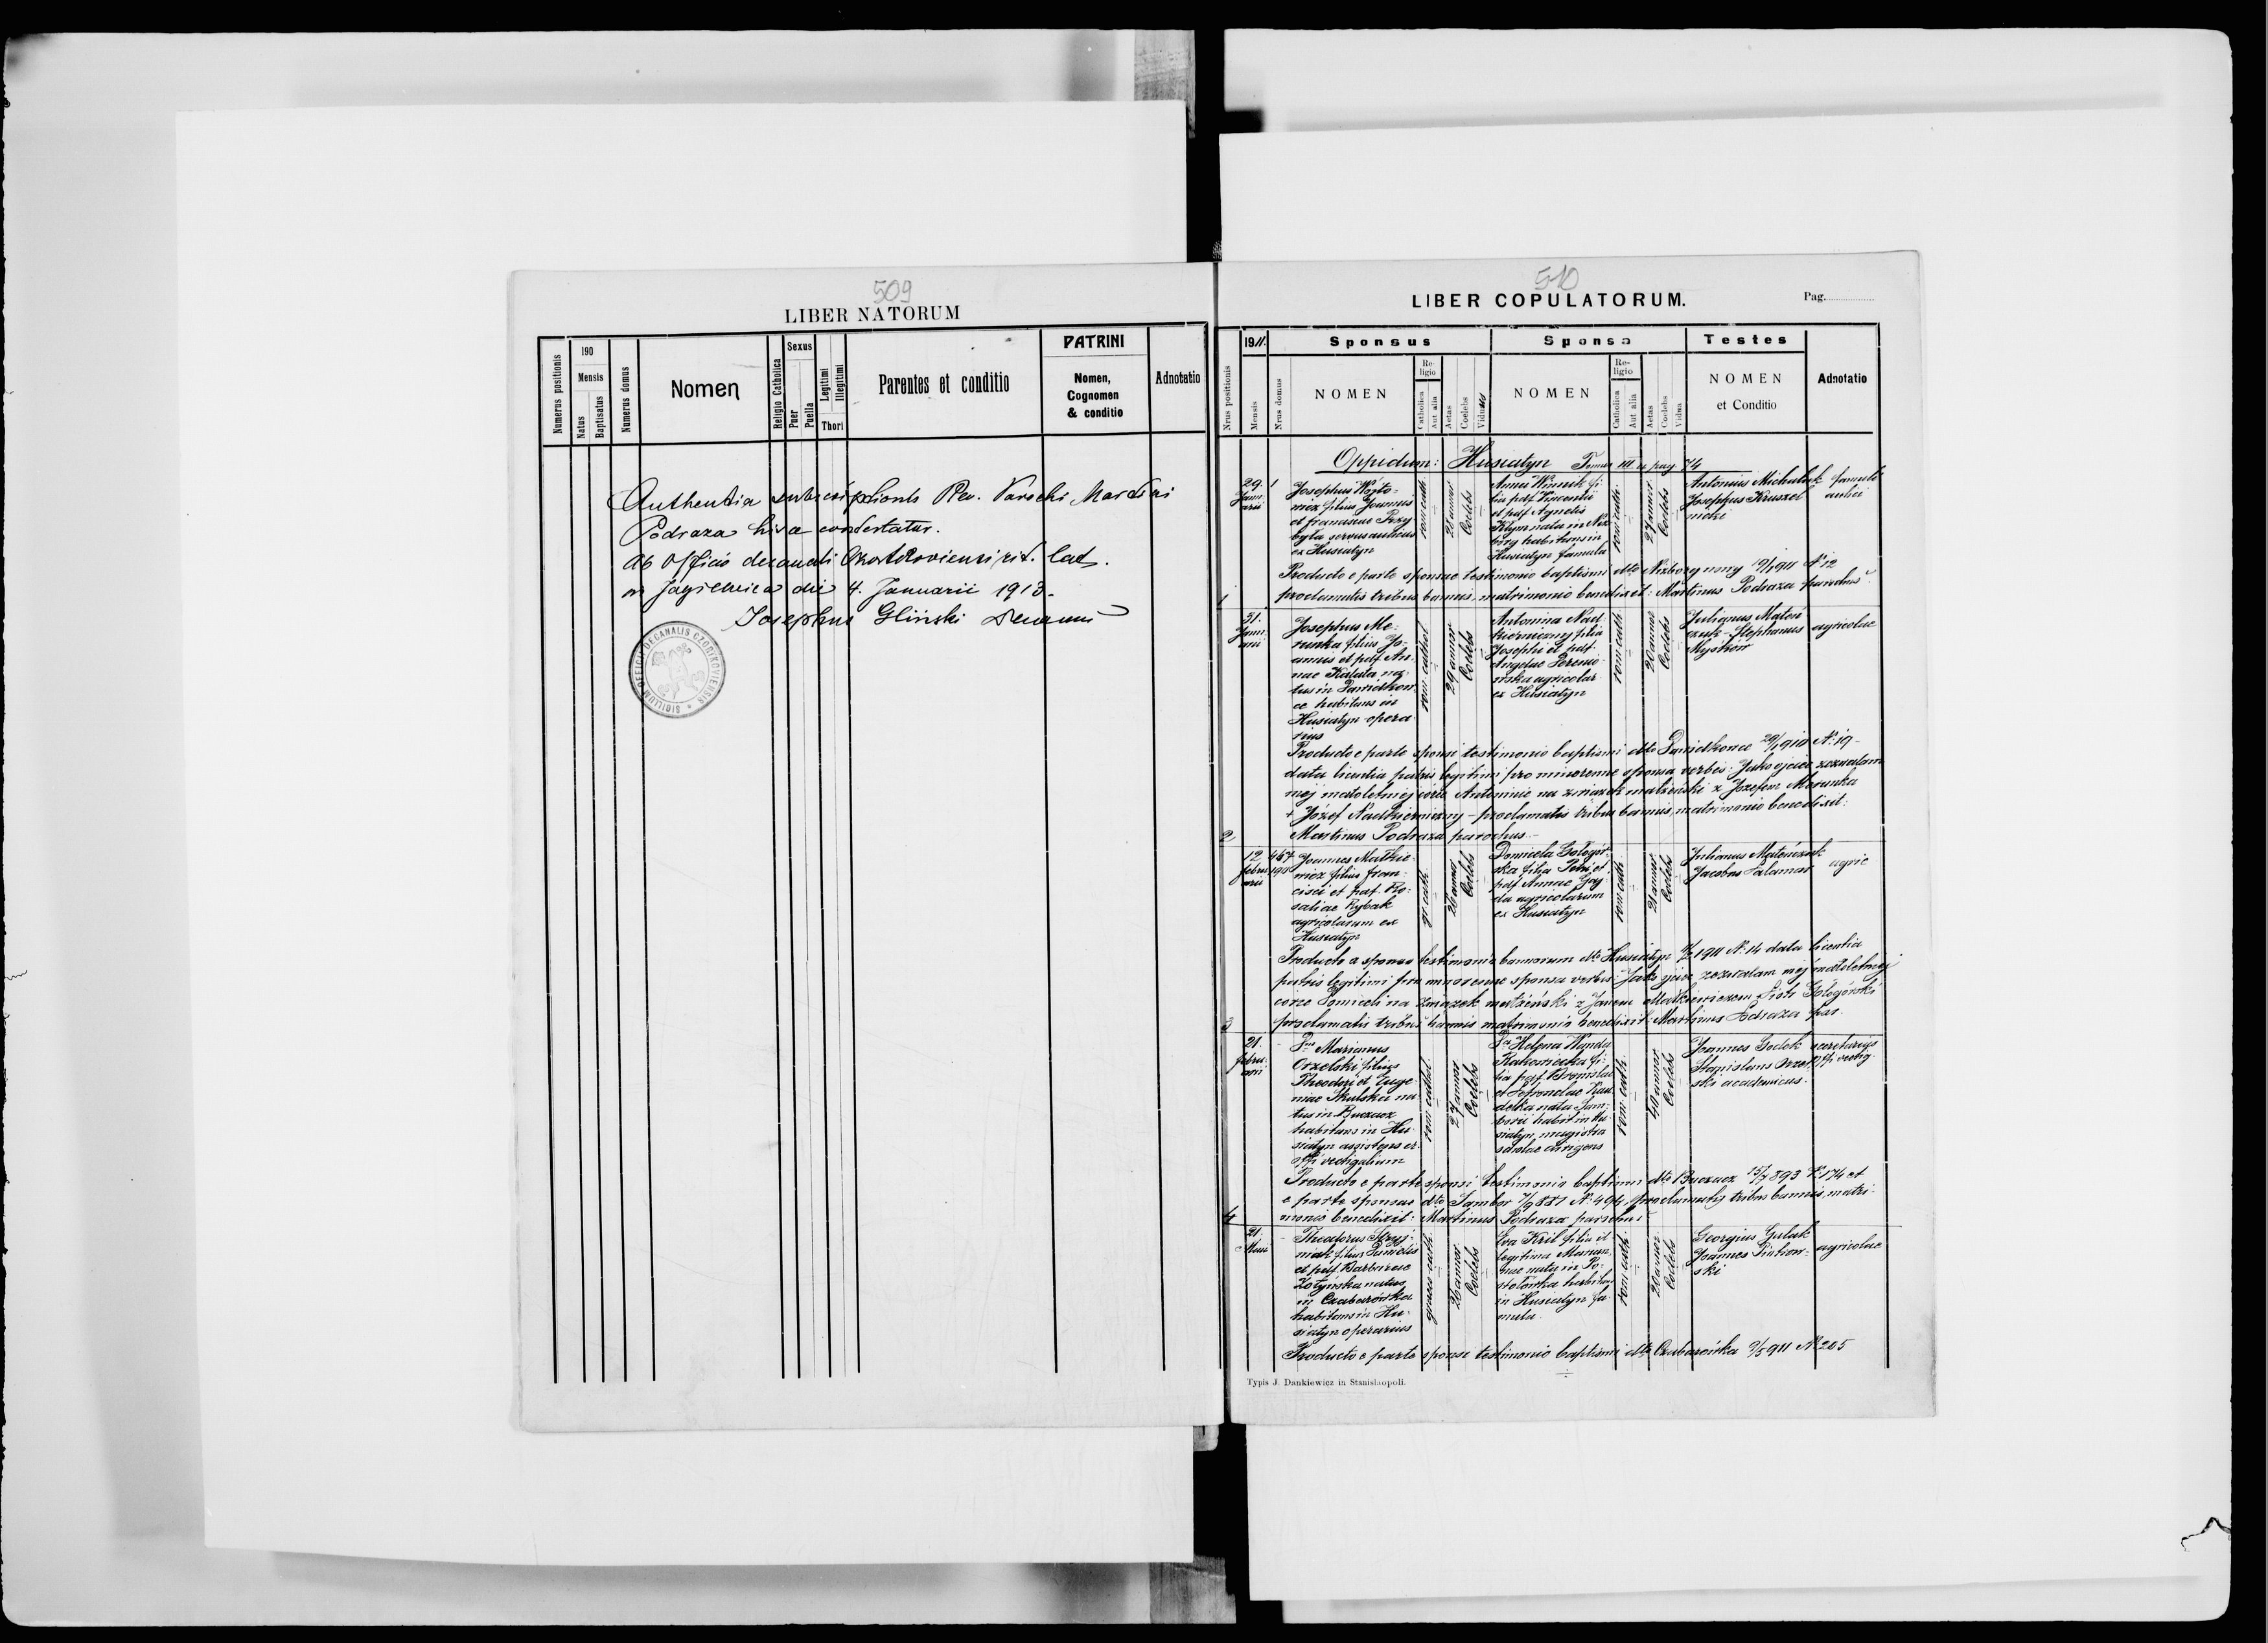 509
LIBER NATORUM
Numerus positionis
190
Mensis
Natus
Baptisatus
Numerus domus
Nomen
Religio Catholica
Sexus
Puer
Puella
Legitimi
Illegitimi
Thori
Parentes et conditio
PATRINI
Nomen,
Cognomen
& conditio
Adnotatio
Authentia subscriptionis Rev. Parochi Martini
Podraza hisce contestatur.
Ab Officio decanali Czortkoviensi rit. lat.
in Jagielnica die 4. Januarii 1913.
Josephus Gliński Decanus
SIGILLUM OFFICII DECANALIS CZORTKOVIENSIS
510
LIBER COPULATORUM.
Pag.
Nrus positionis
1911.
Mensis
Nrus domus
Sponsus
NOMEN
Religio
Catholica
Aut alia
Aetas
Coelebs
Viduus
Sponsa
NOMEN
Religio
Catholica
Aut alia
Aetas
Coelebs
Vidua
Testes
NOMEN
et Conditio
Adnotatio
Oppidum: Husiatyn Tomus III pag. 74
29.
Janu-
arii
1
Josephus Wojto-
wicz filius Joannis
et Franciscae Przy-
była servus aulicus
ex Husiatyn
rom. cath.
Coelebs
Anna Winnik fi-
lia pdf. Vincentii
et pdf. Agnetis
Klym nata in Niż-
borg habitans in
Husiatyn famula
rom. cath.
27 annor
Coelebs
Antonius Michalak famuli
Josephus Kruszel- aulici
nicki
Producto e parte sponsae testimonio baptismi dto Niżborg nowy 19/1 911 N. 12
proclamatis tribus bannis, matrimonio benedixit: Martinus Podraza parochus
1
31.
Janu-
arii
Josephus Me-
runka filius Jo-
annis et pdf. An-
nae Kałuta na-
tus in Dawidkow-
ce habitans in
Husiatyn opera-
rius
rom. cathol
29 annor
Coelebs
Antonina Nad-
kierniczny filia
Josephi et pdf.
Angelae
agricolar
ex Husiatyn
rom. cath.
20 annor
Coelebs
Julianus Mateń-
czuk - Stephanus
Myśków
agricolae
Producto e parte sponsi testimonio baptismi dto Dawidkowce 29/1 910 N. 19 -
data licentia patris legitimi pro minorenne sponsa verbis: Jako ojciec zezwalam
mej małoletniej córce Antoninie na związek małżeński z Józefem Merunka
+ Józef Nadkierniczny - proclamatis tribus bannis, matrimonio benedixit:
Martinus Podraza parochus -
2
12
Febru-
arii
Joannes Matkie-
wicz filius Fran-
cisci et pdf. Ro-
saliae Rybak
agricolarum ex
Husiatyn
gr. cath.
26 annor
Coelebs
Domicela Gołogór-
ska filia Petri et
pdf. Annae
agricolarum
ex Husiatyn
rom. cath.
21 annor
Coelebs
Julianus Mateńczuk
Jacobus Salamar
agric
Producto a sponso testimonio bannorum dto Husiatyn 1911 N. 14 data licentia
patris legitimi pro minorenne sponsa verbis: Jako ojciec zezwalam mej małoletniej
córce Domiceli na związek małżeński z Janem Matkiewiczem Piotr Gołogórski
proclamatis tribus bannis matrimonio benedixit Martinus Podraza par.
3
21.
Febru-
arii
Dnus Marianus
Orzelski filius
Theodori et Euge-
niae Skulska na-
tus in Buczacz
habitans in Hu-
siatyn assistens c.r.
offi vectigalium
rom. cathol.
27 annor
Coelebs
Dna Helena Wanda
Rakowiecka fi-
lia pdf. Bronislai
et Petronelae
nata Sam-
borii habit in Hu-
siatyn magistra
scholae dirigens
rom. cath.
40 annor
Coelebs
Joannes Godek secretarius
Stanislaus Orzel- offi vectig.
ski academicus.
Producto e parte sponsi testimonio baptismi dto Buczacz 893 N. 174 et
e parte sponsae dto Sambor 881 N. 494, proclamatis tribus bannis, matri-
monio benedixit: Martinus Podraza parochus
4
21.
Maii
Theodorus
filius
et pdf. Barbarae
natus
in Czabarówka
habitans in Hu-
siatyn operarius
graeco cath.
26 annor
Coelebs
Eva Kril filia il-
legitima Marian-
nae nata in Po-
stołówka habitans
in Husiatyn fa-
mula
rom. cath.
Coelebs
Georgius Gulak
Joannes Piotrow-
ski
agricolae
Producto e parte sponsi testimonio baptismi dto Czabarówka 9/5 911 N. 205
Typis J. Dankiewicz in Stanislaopoli.